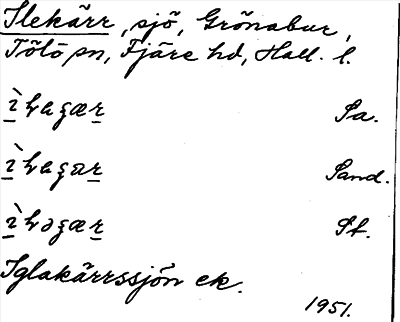 Ilekärr, sjö, Grönabur,
Tölö sn, Fjäre hd, Hall. l.
Sa.
Sand.
St.
Iglakärrssjön ek.
1951.